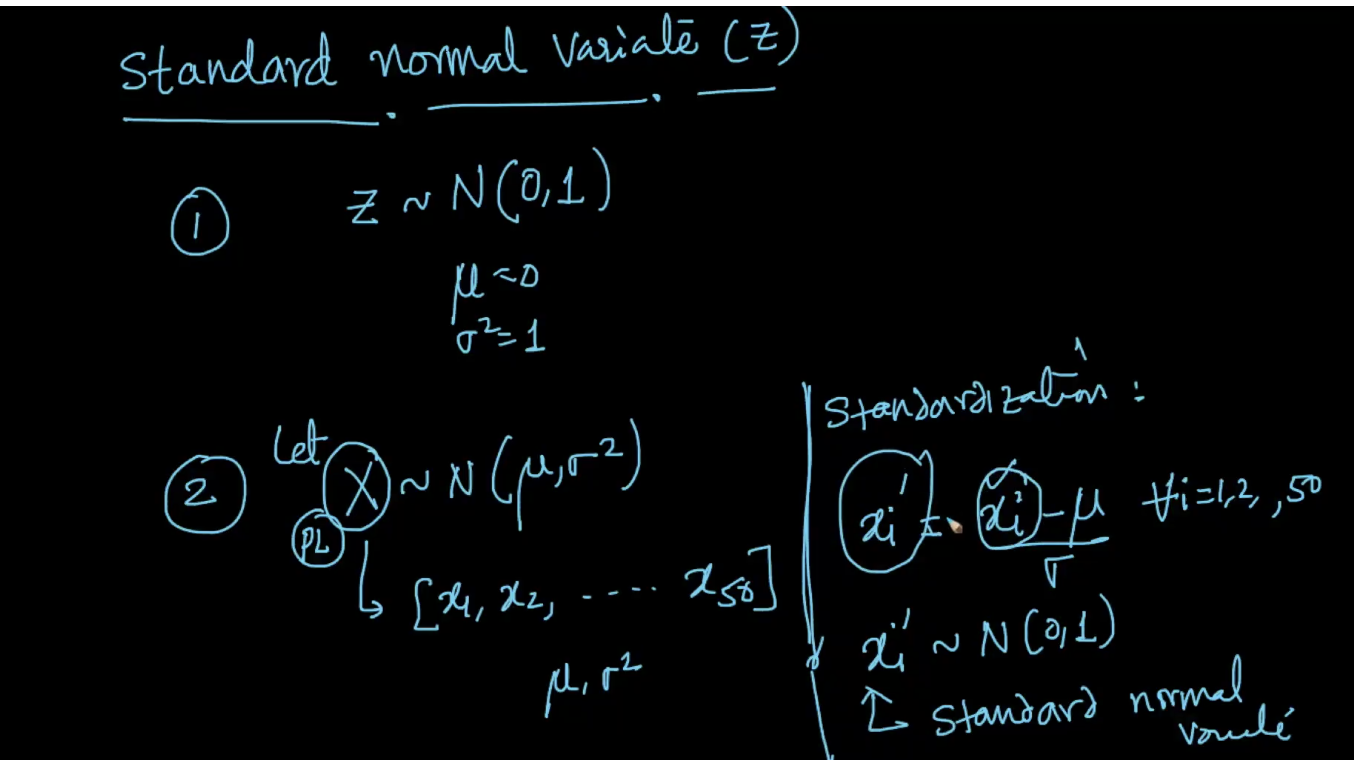 Standard normal variate (Z)
1 Z ~ N(0,1)
μ = 0
σ² = 1
2 Let X ~ N(μ,σ²)
PL
[x₁, x₂, ..... x₅₀]
μ, σ²
Standardization :
xᵢ' = (xᵢ - μ) / σ ∀i=1,2, ,50
xᵢ' ~ N(0,1)
Standard normal
variate